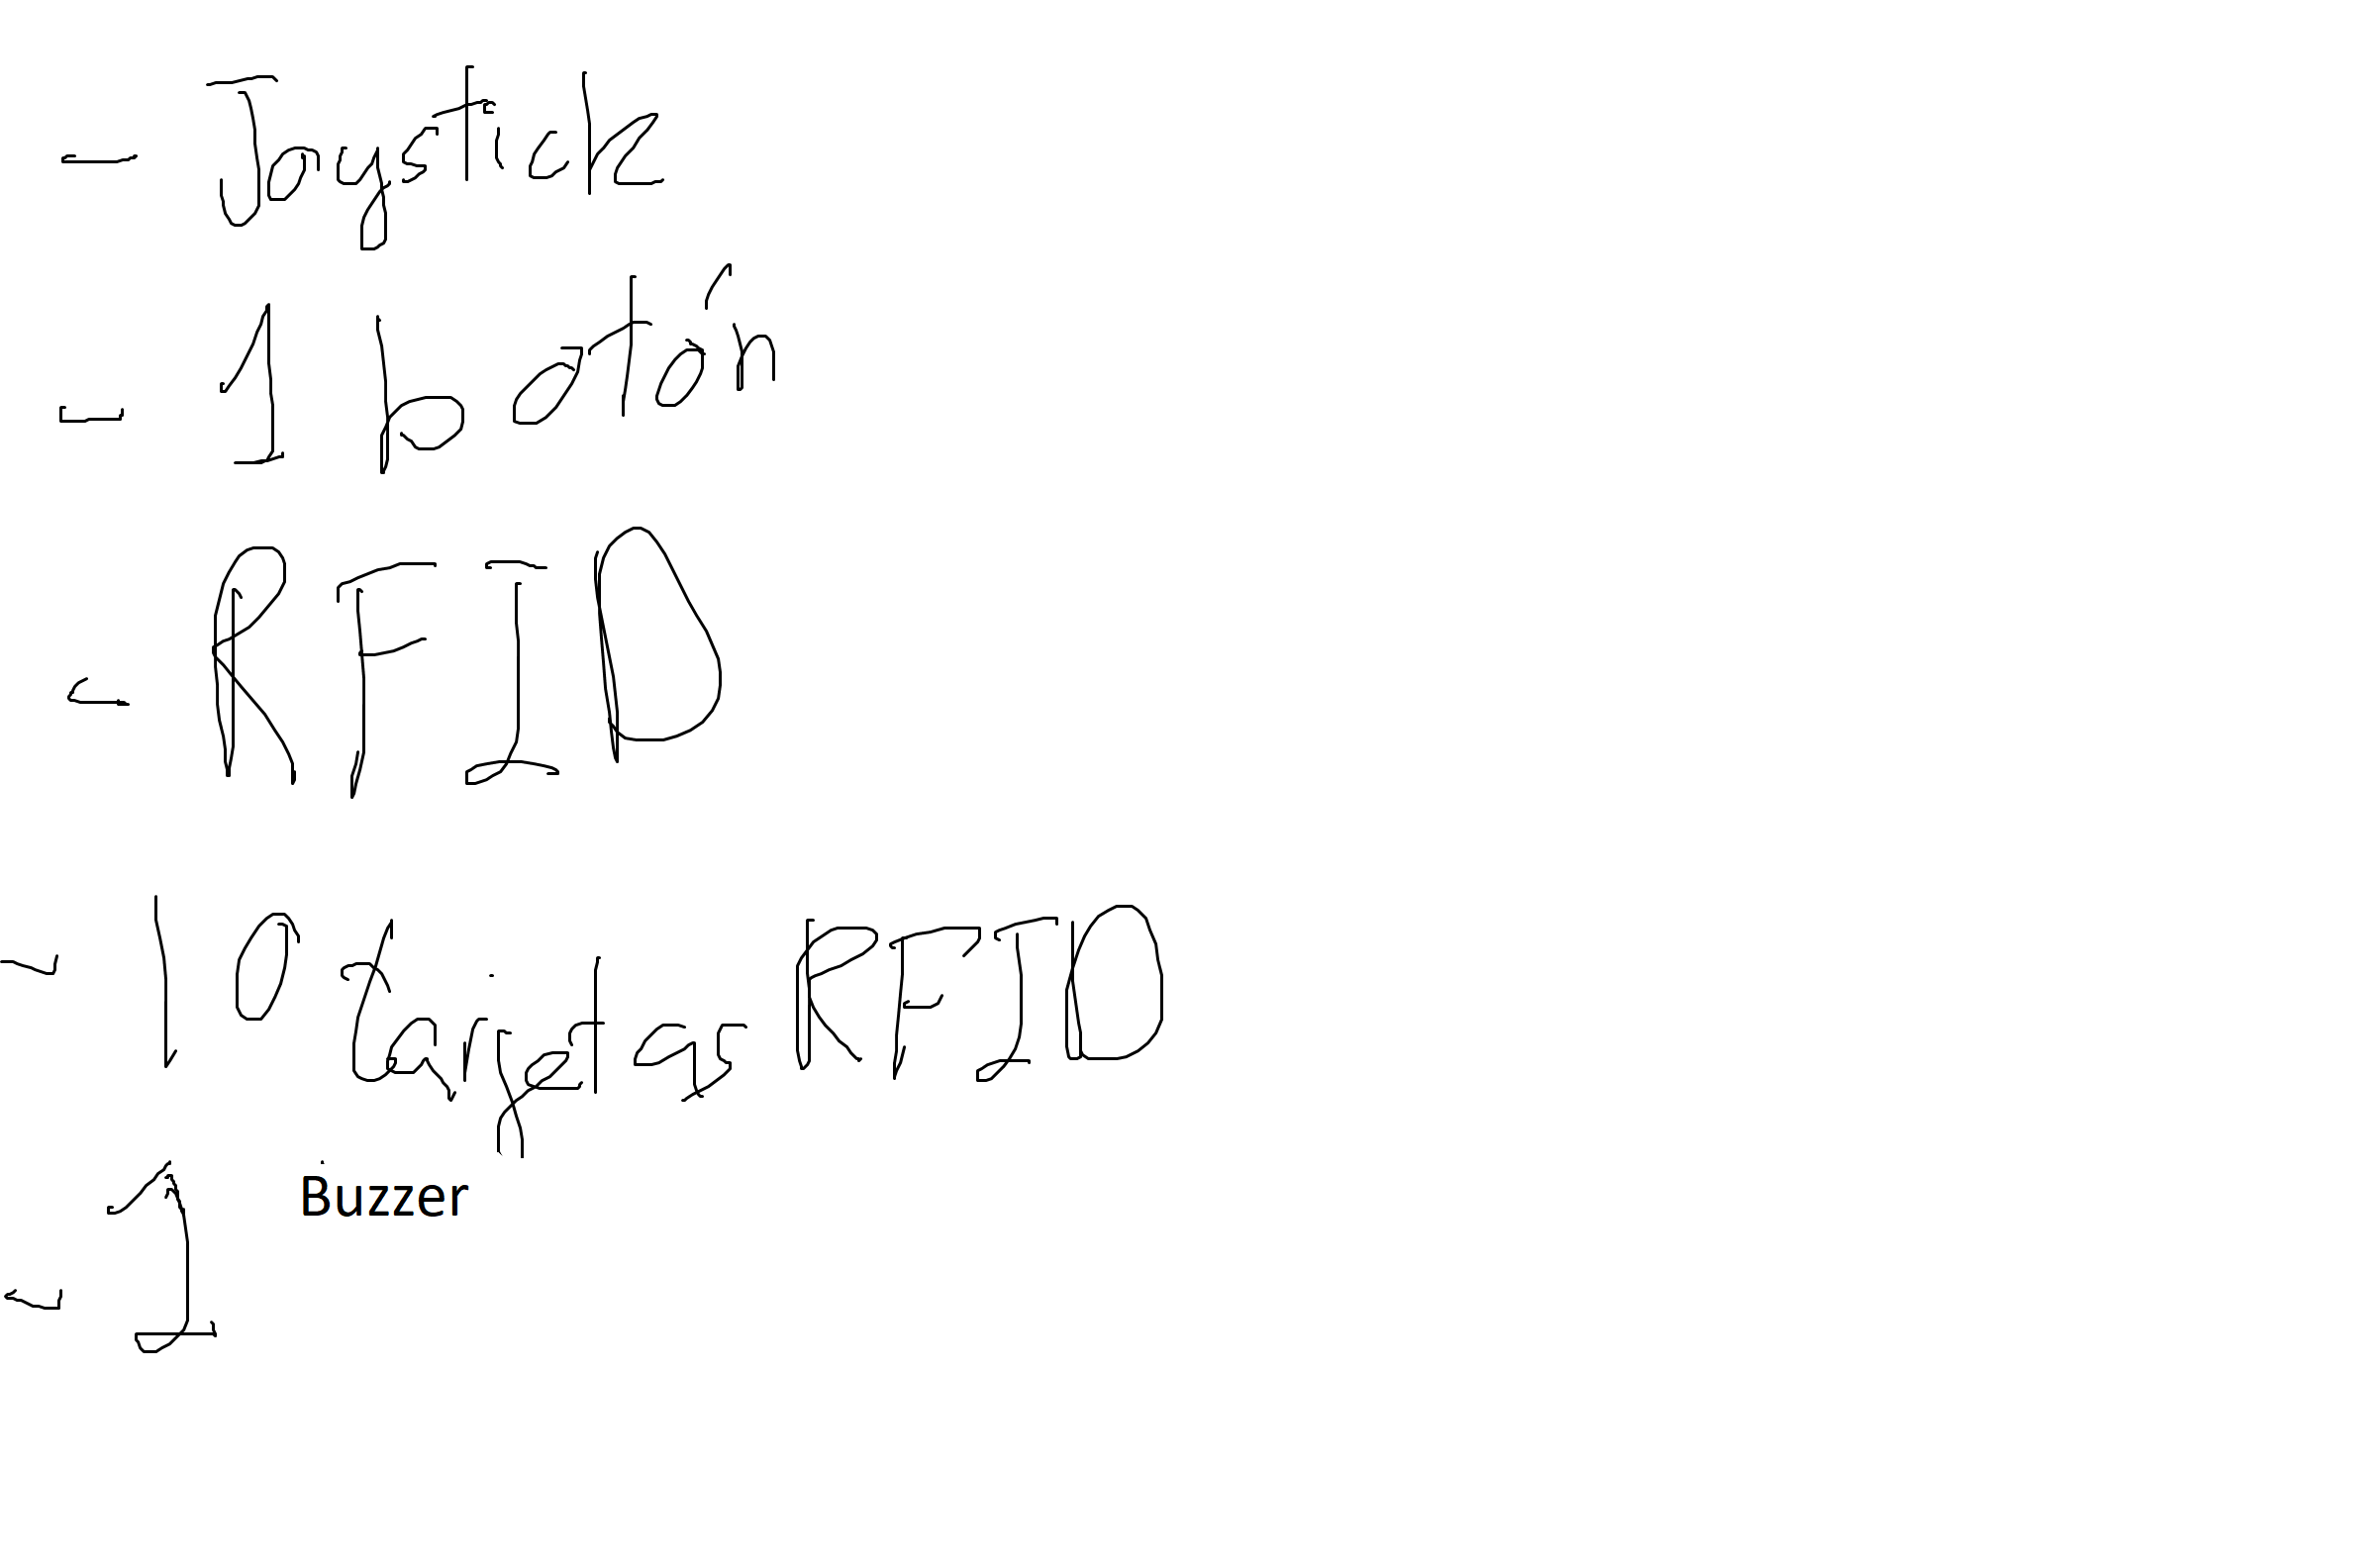 - Joystick
- 1 botón
- RFID
- 10 tarjetas RFID
- 1 Buzzer